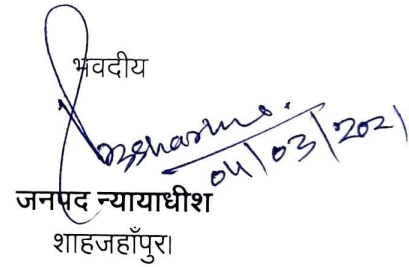 भवदीय
04/03/2021
जनपद न्यायाधीश
शाहजहाँपुर।